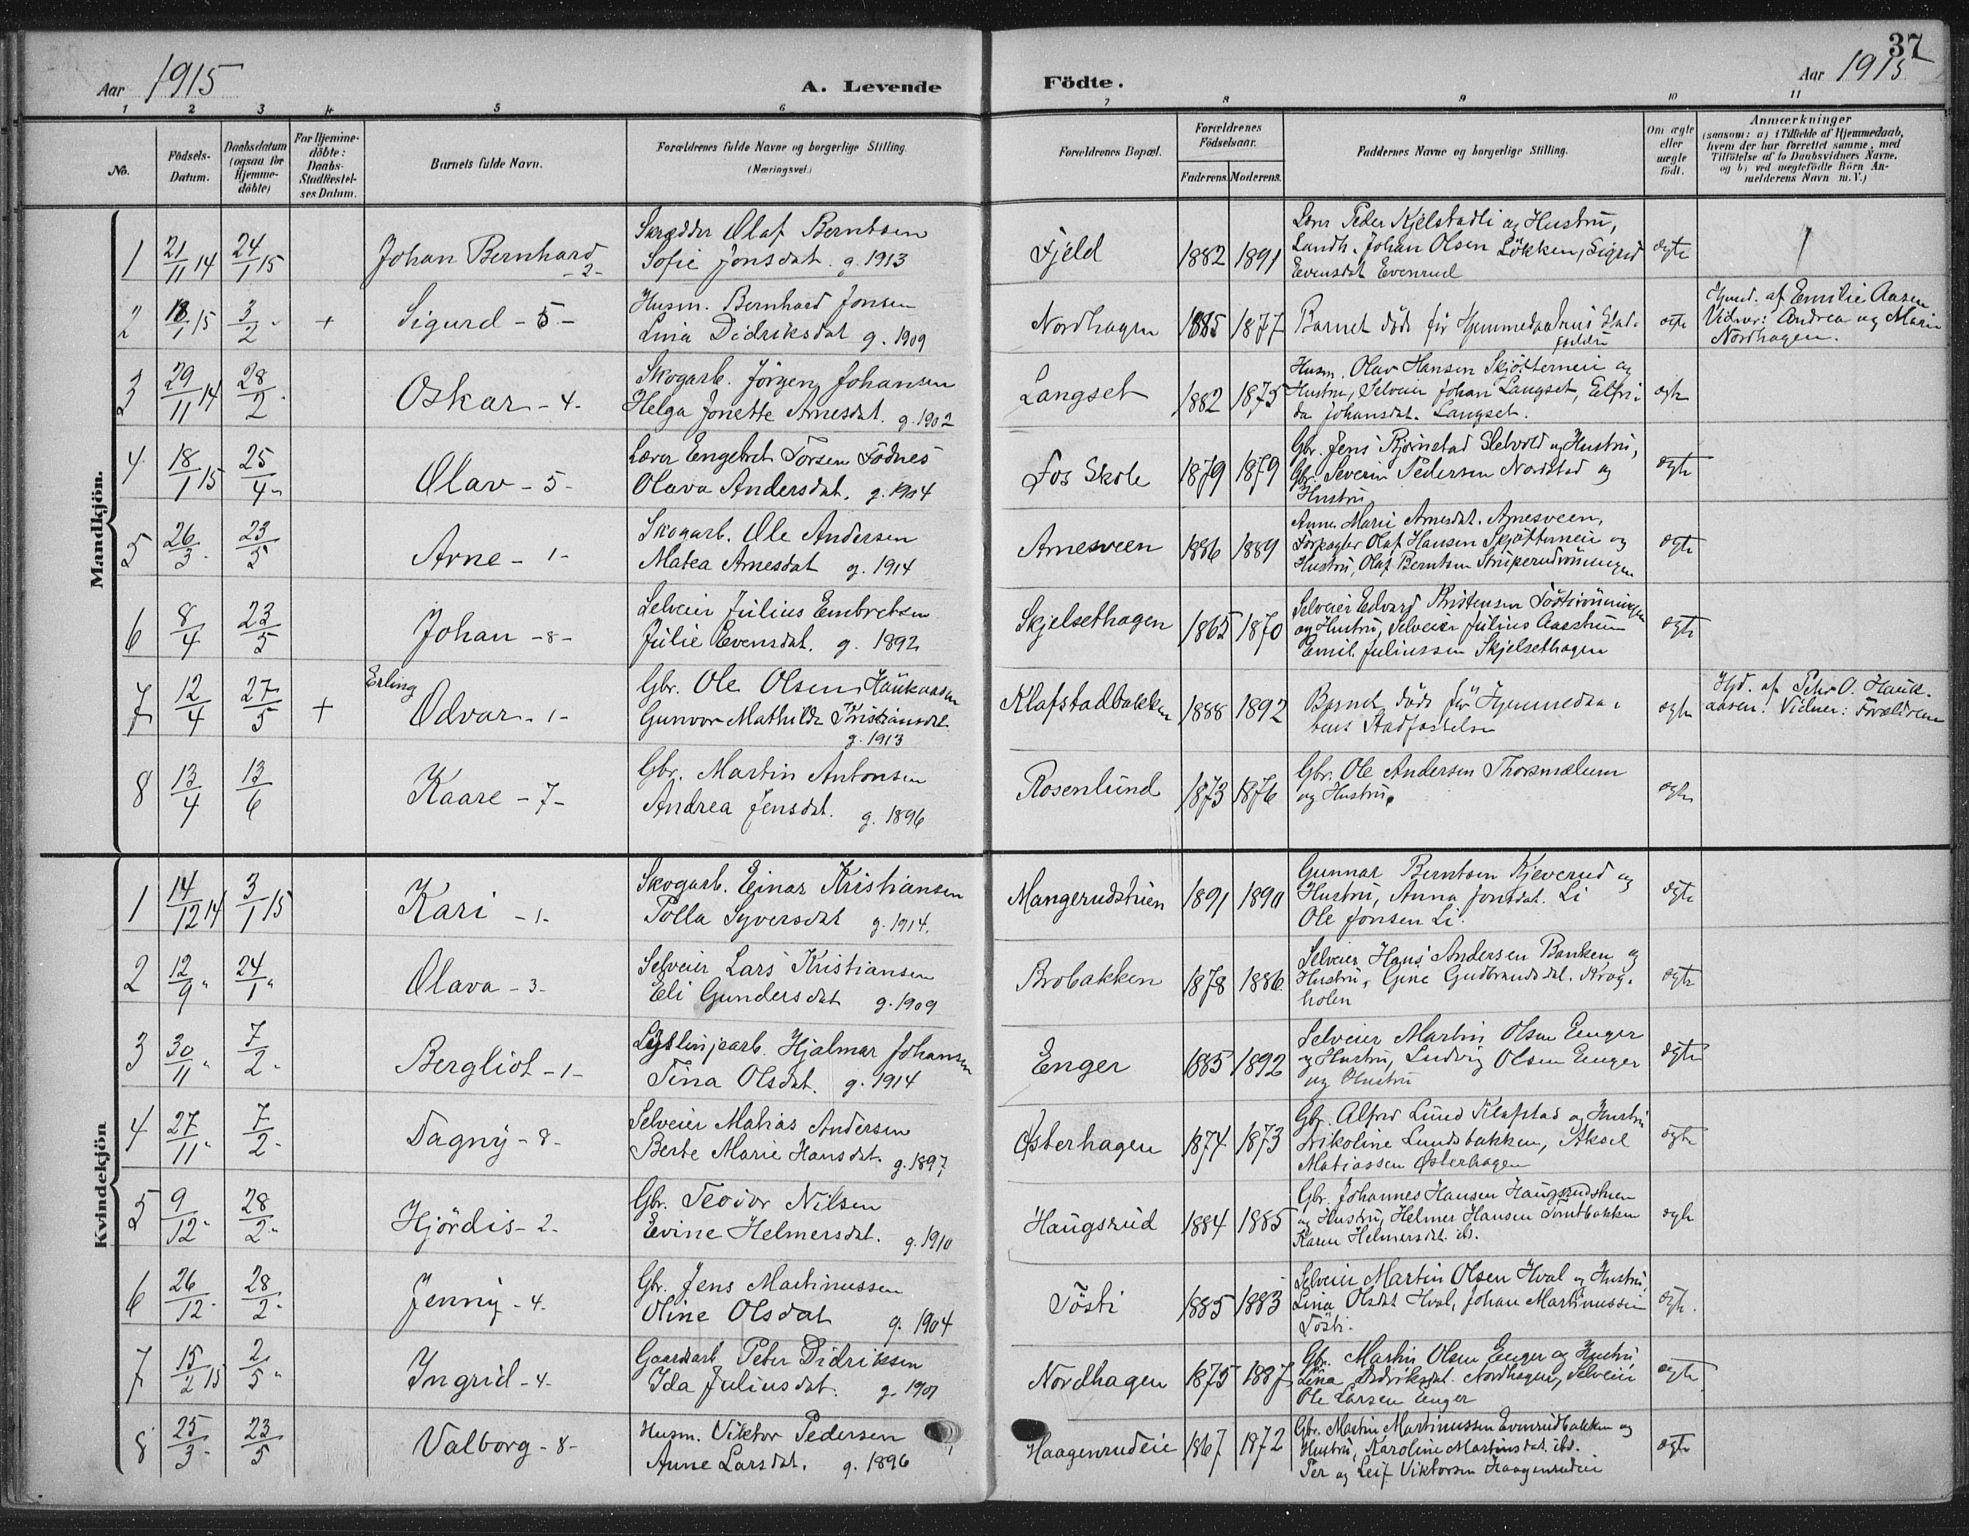 37
Aar 1915 A. Levende Födte. Aar 1915
1 2 3 4 5 6 7 8 9 10 11
No.
Födsels-
Datum.
Daabsdatum
(ogsaa for
Hjemme-
döbte)
For Hjemme-
döbte:
Daabs-
Stadfæstel-
ses Datum.
Barnets fulde Navn.
Forældrenes fulde Navne og borgerlige Stilling.
(Næringsvei.)
Forældrenes Bopæl.
Forældrenes
Födselsaar.
Faderens. Moderens.
Faddernes Navne og borgerlige Stilling.
Om ægte
eller
uægte
födt.
Anmærkninger
(saasom: a) i Tilfælde af Hjemmedaab,
hvem der har forrettet samme, med
Tilföielse af to Daabsvidners Navne,
og b) ved uægtefödte Börn An-
melderens Navn m. V.)
Mandkjön.
1 21/11 14 24/1 15 Johan Bernhard -2-
Skrædder Olaf Berntsen
Sofie Jonsdat. g. 1913
Fjeld 1882 1891
Peder Kjelstadli og Hustru,
Landh. Johan Olsen Løkken, Sigrid
Evensdat Evenrud
ægte
2 18/1 15 3/2 + Sigurd - 5 -
Husm. Bernhard Jonsen
Lina Didriksdat g. 1909
Nordhagen 1885 1877
Barnet døde før Hjemmedaabens Stad-
fæstelse
ægte
Hjmd. af Emilie Aasen
Vidner: Andrea og Marie
Nordhagen.
3 29/11 14 28/2 Oskar - 4 -
Skogarb. Jörgen Johansen
Helga Jonette Arnesdat. g. 1902
Langset 1882 1875
Husm. Olav Hansen Skjøtterneie og
Hustru, Selveier Johan Langset, Elfri-
da Johansdat. Langset.
ægte
4 18/1 15 25/4 Olav - 5 -
Lærer Engebret Torsen Fodnes
Olava Andersdat. g. 1904
Fos Skole 1879 1879
Gbr. Jens Bjørnstad Sletvold og Hustru,
Gbr. Severin Pedersen Nordstad og
Hustru
ægte
5 26/3 23/5 Arne - 1 -
Skogarb. Ole Andersen
Matea Arnesdat g. 1914
Arnesveen 1886 1889
Anne Marie Arnesdat. Arnesveen,
Forpagter Olaf Hansen Skjøtterneie og
Hustru, Olaf Berntsen
ægte
6 8/4 23/5 Johan - 8 -
Selveier Julius Embretsen
Julie Evensdat. g. 1892
Skjelsethagen 1865 1870
Selveier Edvard Kristensen
og Hustru, Selveier Julius Aasstuen
Emil Juliussen Skjelsethagen
ægte
7 12/4 27/5 + Erling
Odvar - 1 -
Gbr. Ole Olsen Haukaasen
Gunvor Mathilde Kristiansdat.
g. 1913
Klafstadbakken 1888 1892
Barnet døde før Hjemmedaa-
bens Stadfæstelse
ægte
Hjd. af Pehr O. Hauk-
aasen. Vidner: Forældrene
8 13/4 13/6 Kaare - 7 -
Gbr. Martin Antonsen
Andrea Jensdat. g. 1896
Rosenlund 1873 1876
Gbr. Ole Andersen Thorsmælum
og Hustru.
ægte
Kvindekjön
1 14/12 14 3/1 15 Kari - 1 -
Skogarb. Einar Kristiansen
Polla Syversdat g. 1914.
Mangerudstuen 1891 1890
Gunnar Berntsen Kjeverud og
Hustru, Anna Jonsdat. Li
Ole Jonsen Li.
ægte
2 12/9 " 24/1 " Olava - 3 -
Selveier Lars Kristiansen
Eli Gundersdat g. 1909
Brobakken 1878 1886
Selveier Hans Andersen Banken og
Hustru, Gine Gudbrandsdat. Krog-
holen
ægte
3 30/11 " 7/2 Bergliot - 1 -
Hjalmar Johansen
Tina Olsdat. g. 1914
Enger 1885 1892
Selveier Martin Olsen Enger
og Hustru, Ludvig Olsen Enger
og Hustru
ægte
4 27/11 " 7/2 Dagny - 8 -
Selveier Matias Andersen
Berte Marie Hansdat. g. 1897
Østerhagen 1874 1873
Gbr. Alfred Lund Klafstad og Hustru
Nikoline Lundsbakken, Aksel
Matiassen Østerhagen
ægte
5 9/12 " 28/2 Hjördis - 2 -
Gbr. Teodor Nilsen
Evine Helmersdat. g. 1910
Haugsrud 1884 1885
Gbr. Johannes Hansen Haugsrudstuen
og Hustru, Helmer Hansen Tomtbakken
Karen Helmersdat. ibd.
ægte
6 26/12 " 28/2 Jenny - 4 -
Gbr. Jens Martinussen
Oline Olsdat g. 1904
Tösti 1885 1883
Selveier Martin Olsen Hval og Hustru
Lina Olsdat Hval, Johan Martinussen
Tösti.
ægte.
7 15/2 15 2/5 Ingrid - 4 -
Gaardarb. Peter Didriksen
Ida Juliusdat. g. 1901
Nordhagen 1875 1887
Gbr. Martin Olsen Enger og Hustru
Lina Didriksdat. Nordhagen, Selveier
Ole Larsen Enger
ægte
8 25/3 23/5 Valborg - 8 -
Husm. Viktor Pedersen
Anne Larsdat. g. 1896
Haagenrudeie 1867 1872
Gbr. Martin Martinussen Evenrudbakken og
Hustru, Karoline Martinsdat. ibd.
Per og Leif Viktorsen Haagenrudeie
ægte